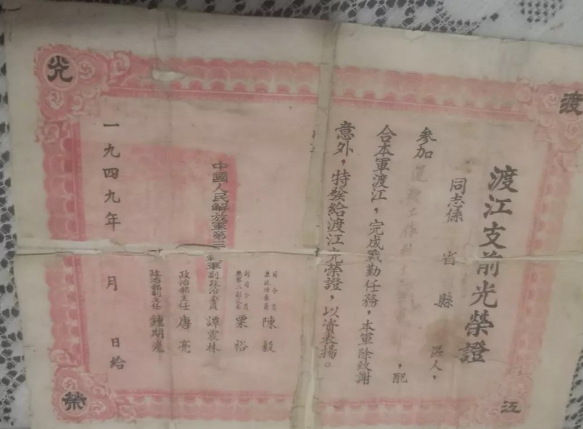 渡
江
光
榮
渡江支前光榮證
同志係 省 縣 區人,
參加 配
合本軍渡江,完成戰勤任務,本軍除致謝
意外,特發給渡江光榮證,以資表揚。
陳毅
粟裕
副政治委員 譚震林
政治部主任 唐亮
政治部副主任 鍾期光
中國人民解放軍第三
一九四九年 月 日給